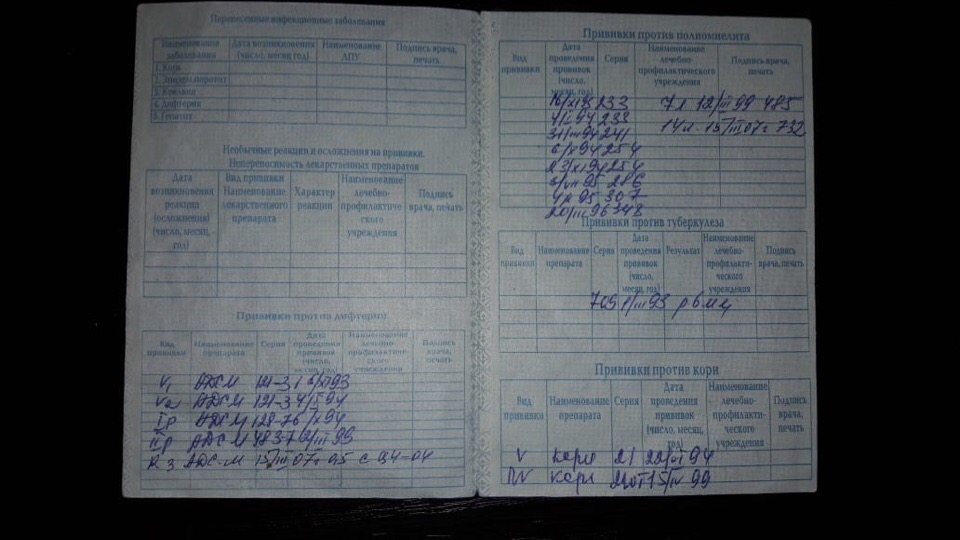 Перенесенные инфекционные заболевания
Наименование заболевания
Дата возникновения (число, месяц год)
Наименование ЛПУ
Подпись врача, печать
1. Корь
2. Эпидем.паротит
3. Коклюш
4. Дифтерия
5. Гепатит
Необычные реакции и осложнения на прививки.
Непереносимость лекарственных препаратов
Дата возникновения реакции (осложнения) (число, месяц, год)
Вид прививки Наименование лекарственного препарата
Характер реакции
Наименование лечебно-профилактического учреждения
Подпись врача, печать
Прививки против дифтерии
Вид прививки
Наименование препарата
Серия
Дата проведения прививок (число, месяц, год)
Наименование лечебно-профилактического учреждения
Подпись врача, печать
V1 АДСМ 121-3
V2 АДСМ 121-3 4/II 94
АДСМ 128-
АДС М 483-7 12/III 99
R3 АДС-М 15/III 07г 0,5 с
Прививки против полиомиелита
Вид прививки
Дата проведения прививок (число, месяц, год)
Серия
Наименование лечебно-профилактического учреждения
Подпись врача, печать
233 7л 12/III 99 485
233 14л 15/III 07г 732
31/III 94 241
6/X 94 254
23/XI 94 254
95 286
95 307
20/III 96 348
Прививки против туберкулеза
Вид прививки
Наименование препарата
Серия
Дата проведения прививок (число, месяц, год)
Результат
Наименование лечебно-профилактического учреждения
Подпись врача, печать
709 93 р 6 мм
Прививки против кори
Вид прививки
Наименование препарата
Серия
Дата проведения прививок (число, месяц, год)
Наименование лечебно-профилактического учреждения
Подпись врача, печать
V кори 21 22/VI 94
RV кори 99